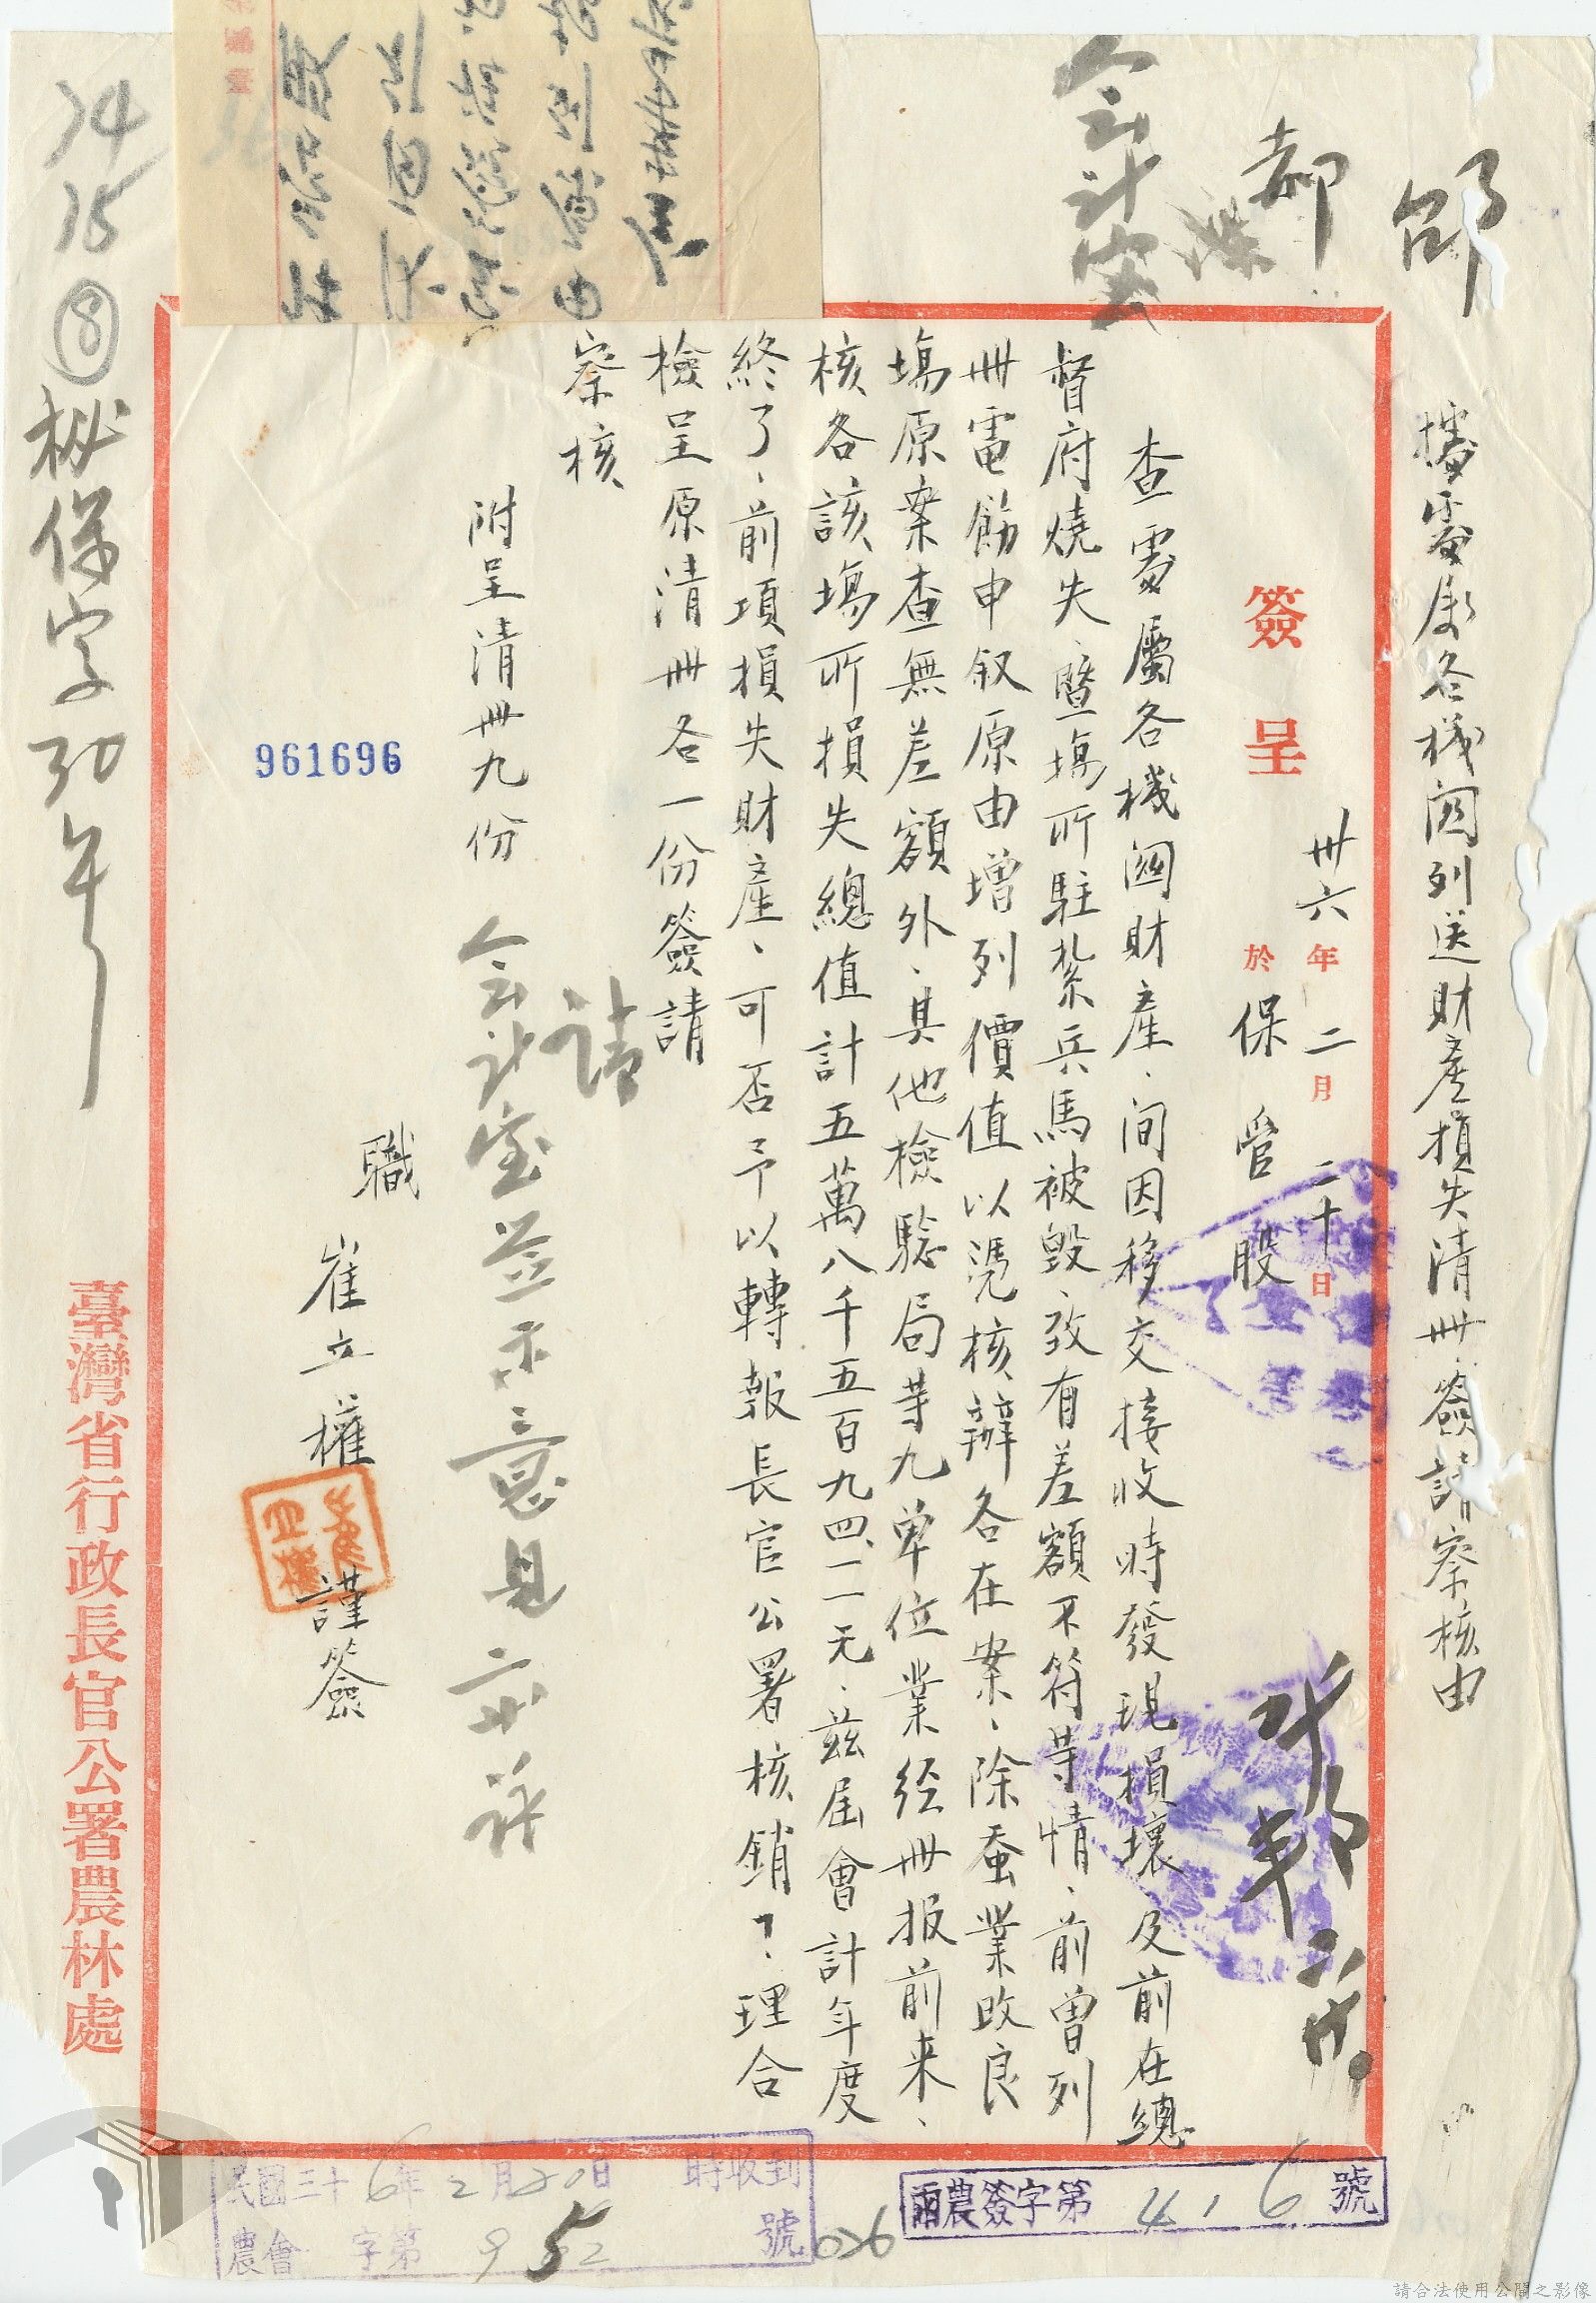 據處屬各機関列送財產損失清冊簽請察核由
邵
郝
会計室
簽呈
卅六年二月二十日
於保管股
查處屬各機關財產、间因移交接收時發現損壞、及前在總
督府燒失、暨塲所駐紮兵馬被毀、致有差額不符等情、前曾列
冊電飭申叙原由增列價值以凭核辦各在案、除蚕業改良
塲原案查無差額外、其他檢驗局等九单位業经冊报前来、
核各該塲所損失總值計五萬八千五百九四、一一元、茲届會計年度
終了、前項損失財產、可否予以轉報長官公署核銷？理合
檢呈原清冊各一份簽請
察核
附呈清冊九份
請
会計室签示意見
職
崔立權謹簽
961696
臺灣省行政長官公署農林處
14
15
⑧
秘保字30年
民國三十6年2月20日 時收到
農會 字第952號
026
爾農簽字第416號
請合法使用公開之影像